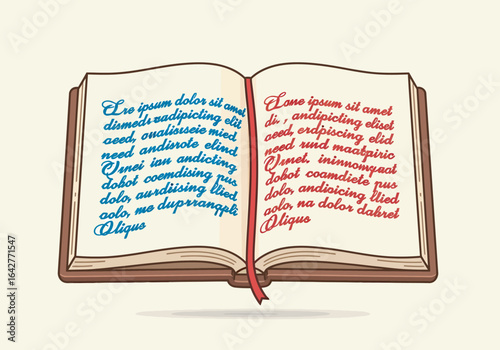 Lre ipsum dolor sit amet
dismeds vadipicting elit
aeed, oualiosseie mied
need andisrote elind
Vinei iou andicting
dobot coemdising pus
dolo, aurdiising llied
aolo, me duprranqpli
Oliqus
Lone ipsum sit amet
di. , andipicting eliset
aeed, erdpiscing elid
need rund maatpiric
Vmel, ininnomqaat
dobot coamdiete pus
aolo, andioicing llied
aolo, na dolor dabret
Oliqus
Adobe Stock
#1642771547